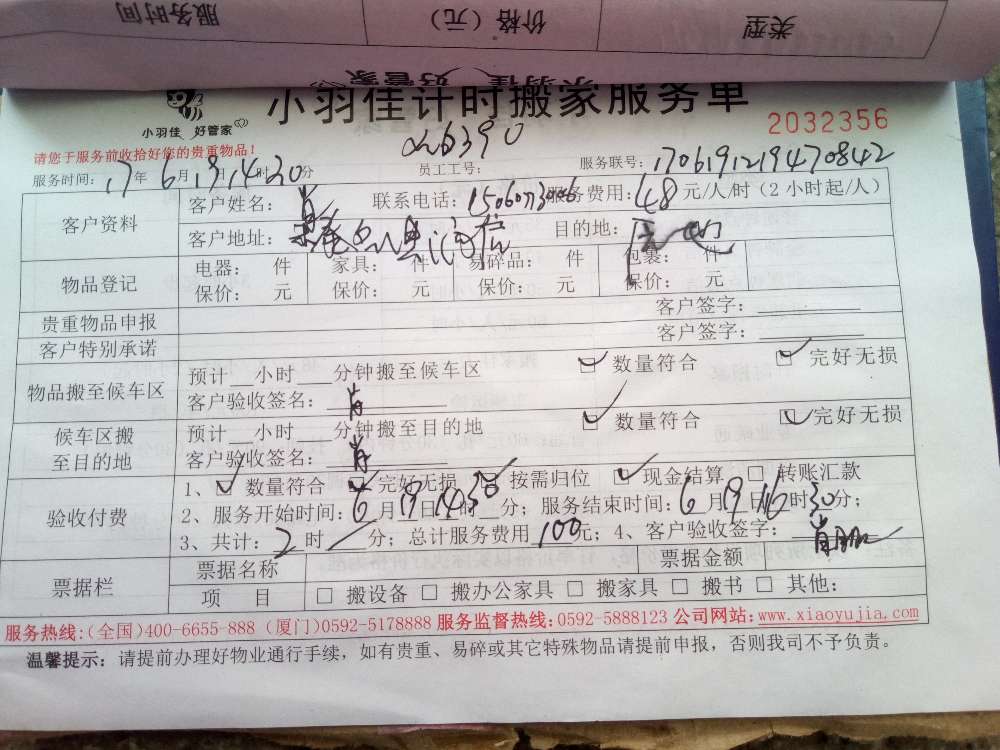 服务时间
价格（元）
类型
小羽佳 好管家
小羽佳计时搬家服务单
2032356
请您于服务前收拾好您的贵重物品！
026390
服务时间：17年6月19日14时20分 员工工号： 服务联号：170619121947084２
客户资料
客户姓名：肖 联系电话： 服务费用：48元/人/时（2小时起/人）
客户地址： 目的地：
物品登记
电器： 件 家具： 件 易碎品： 件 包裹： 件
保价： 元 保价： 元 保价： 元 保价： 元
贵重物品申报 客户签字：
客户特别承诺 客户签字：
物品搬至候车区
预计__小时___分钟搬至候车区 数量符合 完好无损
客户验收签名：肖
候车区搬至目的地
预计__小时___分钟搬至目的地 数量符合 完好无损
客户验收签名：肖
验收付费
1、数量符合 完好无损 按需归位 现金结算 转账汇款
2、服务开始时间：6月19日14时30分；服务结束时间：6月19日16时30分；
3、共计：2时/分；总计服务费用100元；4、客户验收签字：
票据栏
票据名称 票据金额
项 目 □ 搬设备 □ 搬办公家具 □ 搬家具 □ 搬书 □ 其他：
服务热线：（全国）400-6655-888（厦门）0592-5178888 服务监督热线：0592-5888123 公司网站：www.xiaoyujia.com
温馨提示：请提前办理好物业通行手续，如有贵重、易碎或其它特殊物品请提前申报，否则我司不予负责。